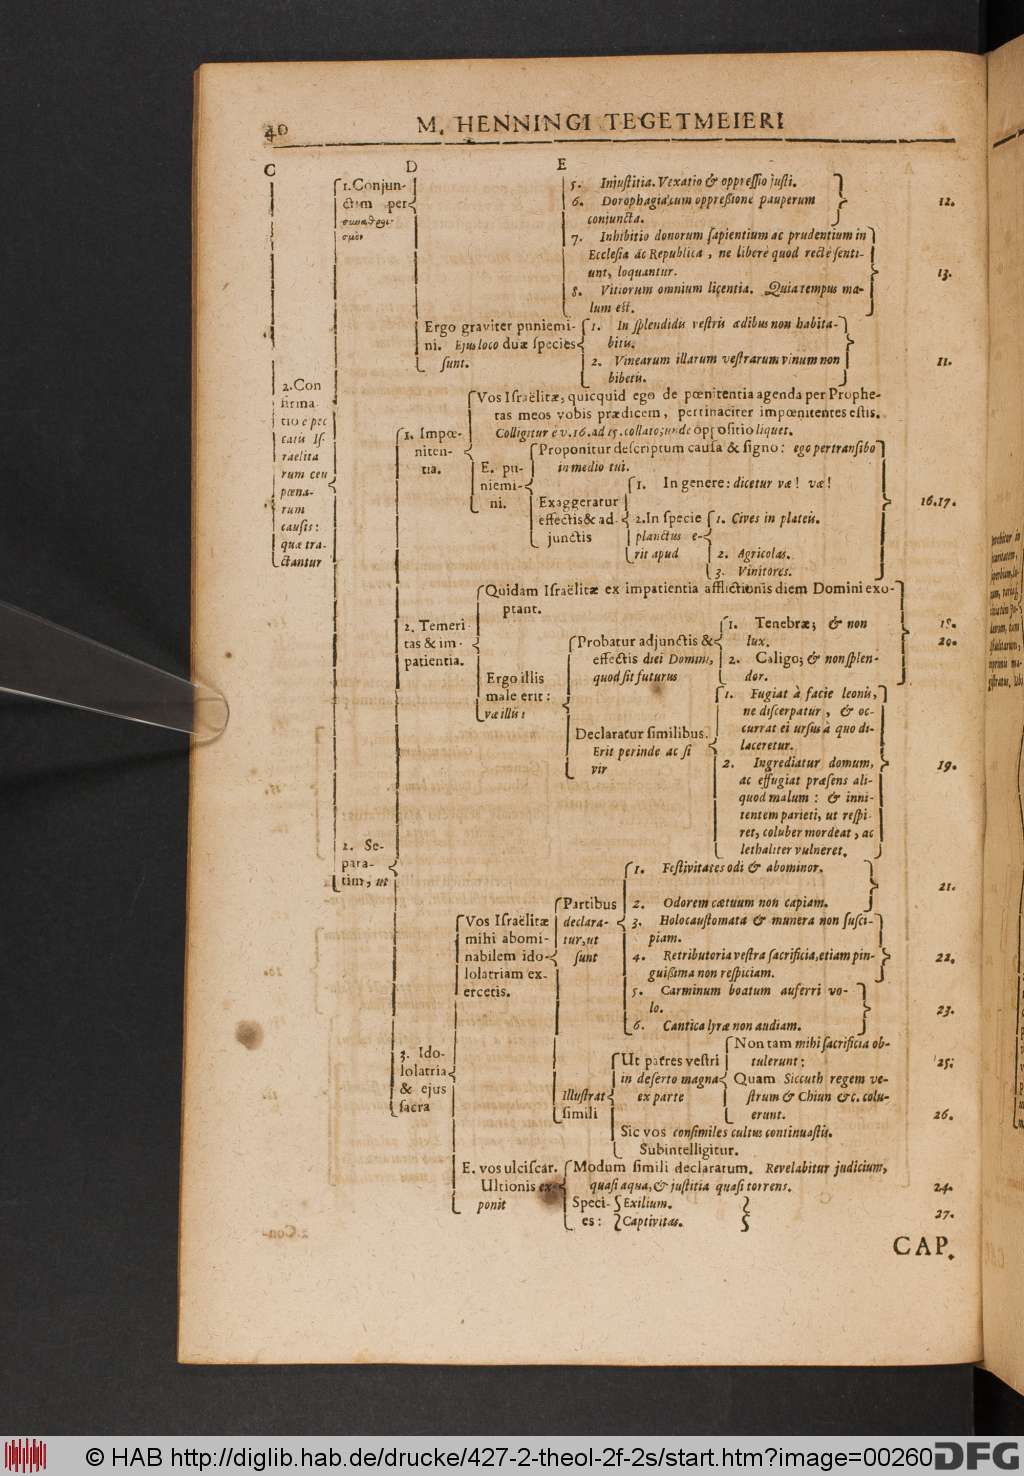 40
M. HENNINGI TEGETMEIERI
C
D
E
1. Conjun-
ctim per
5. Injustitia. Vexatio & oppressio justi.
6. Dorophagia, cum oppressione pauperum
conjuncta.
12.
7. Inhibitio donorum sapientium ac prudentium in
Ecclesia ac Republica, ne liberè quod rectè senti-
unt, loquantur.
13.
8. Vitiorum omnium licentia. Quia tempus ma-
lum est.
Ergo graviter puniemi-
ni. Ejus loco duæ species
sunt.
1. In splendidis vestris ædibus non habita-
bitis.
2. Vinearum illarum vestrarum vinum non
bibetis.
11.
2. Con
firma
tio è pec
catis Is-
raelita
rum ceu
pœna-
rum
causis:
quæ tra-
ctantur
1. Impœ-
niten-
tia.
Vos Israëlitæ, quicquid ego de pœnitentia agenda per Prophe-
tas meos vobis prædicem, pertinaciter impœnitentes estis.
Colligitur è v. 16. ad 15. collato; unde oppositio liquet.
E. pu-
niemi-
ni.
Proponitur descriptum causa & signo: ego pertransibo
in medio tui.
Exaggeratur
effectis & ad-
junctis
1. In genere: dicetur væ! væ!
2. In specie
planctus e-
rit apud
1. Cives in plateis.
2. Agricolas.
3. Vinitores.
16. 17.
2. Temeri
tas & im-
patientia.
Quidam Israëlitæ ex impatientia afflictionis diem Domini exo-
ptant.
18.
20.
Ergo illis
male erit:
væ illis!
Probatur adjunctis &
effectis diei Domini,
quod sit futurus
1. Tenebræ; & non
lux.
2. Caligo; & non splen-
dor.
Declaratur similibus.
Erit perinde ac si
vir
1. Fugiat à facie leonis,
ne discerpatur, & oc-
currat ei ursus à quo di-
laceretur.
2. Ingrediatur domum,
ac effugiat præsens ali-
quod malum: & inni-
tentem parieti, ut respi-
ret, coluber mordeat, ac
lethaliter vulneret.
19.
2. Se-
para-
tim, ut
3. Ido-
lolatria
& ejus
sacra
Vos Israëlitæ
mihi abomi-
nabilem ido-
lolatriam ex-
ercetis.
Partibus
declara-
tur, ut
sunt
1. Festivitates odi & abominor.
2. Odorem cætuum non capiam.
21.
3. Holocaustomata & munera non susci-
piam.
4. Retributoria vestra sacrificia, etiam pin-
guissima non respiciam.
22.
5. Carminum boatum auferri vo-
lo.
6. Cantica lyræ non audiam.
23.
Illustrat
simili
Ut patres vestri
in deserto magna
ex parte
Non tam mihi sacrificia ob-
tulerunt:
25.
Quam Siccuth regem ve-
strum & Chiun &c. colu-
erunt.
26.
Sic vos consimiles cultus continuastis.
Subintelligitur.
E. vos ulciscar.
Ultionis ex-
ponit
Modum simili declaratum. Revelabitur judicium,
quasi aqua, & justitia quasi torrens.
24.
Speci-
es:
Exilium.
Captivitas.
27.
CAP.
© HAB http://diglib.hab.de/drucke/427-2-theol-2f-2s/start.htm?image=00260
DFG